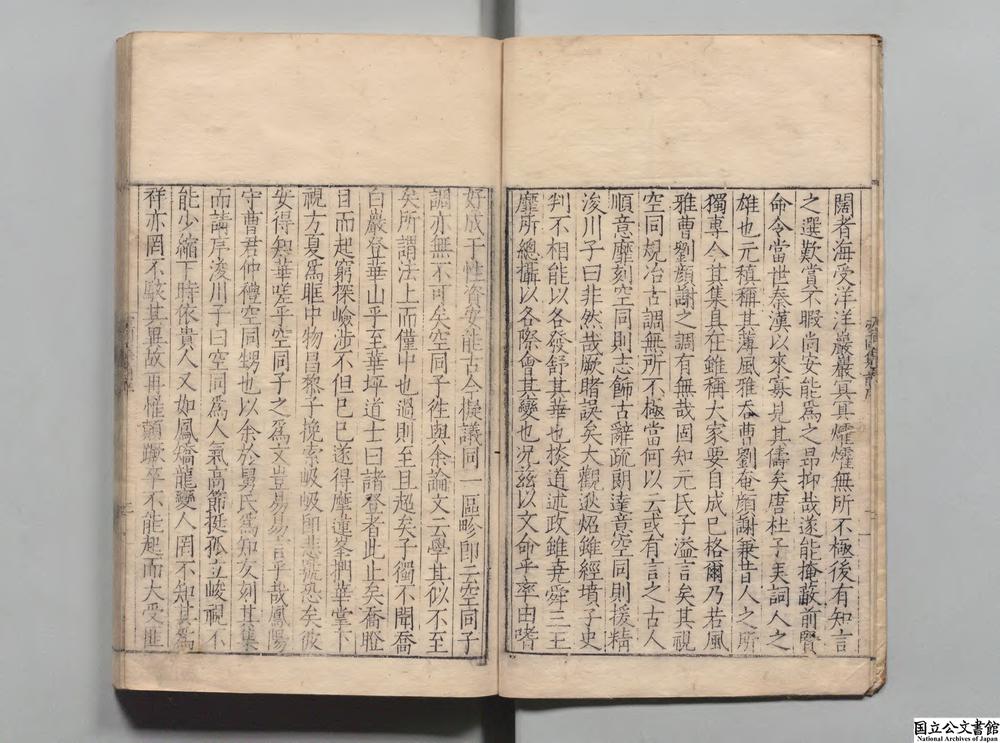 闊者海受洋洋巖巖冥冥燿燿無所不極後有知言
之選歎賞不暇尚安能爲之昻抑哉遂能掩蔽前賢
命令當世秦漢以來寡見其儔矣唐杜子美詞人之
雄也元稹稱其薄風雅吞曹劉奄顏謝兼昔人之所
獨專今其集具在雖稱大家要自成已格爾乃若風
雅曹劉顏謝之調有無哉固知元氏子溢言矣其視
空同規冶古調無所不極當何以云或有言之古人
順意靡刻空同則志飾古辭疏朗達意空同則援精
浚川子曰非然哉厥睹誤矣大觀逖炤雖經墳子史
判不相能以各發舒其華也棪道述政雖堯舜三王
靡所總攝以各際會其變也况兹以文命乎率由嗜
好成于性資安能古今擬議同一區畛卽云空同子
調亦無不可矣空同子徃與余論文云學其似不至
矣所謂法上而僅中也過則至且超矣子獨不聞喬
白巖登華山乎至華坪道士曰諸登者此止矣喬瞪
目而起窮探嶮涉不但已已遂得摩蓮峯捫華掌下
視方夏爲眶中物昌黎子挽索岋岋師悲號恐矣彼
安得知華嗟乎空同子之爲文豈易易言乎哉鳳陽
守曹君仲禮空同甥也以余於舅氏爲知友刻其集
而請序浚川子曰空同爲人氣高節挺孤立峻視不
能少縮下時依貴人又如鳳矯龍變人罔不知其爲
祥亦罔不駭其異故再罹顛蹶卒不能起而大受匪
国立公文書館
National Archives of Japan